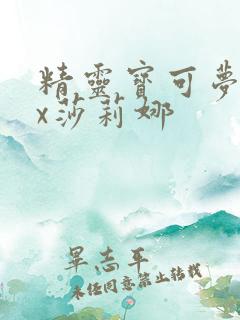 精靈寶可夢
x莎莉娜
畢志平
未经同意禁止转载